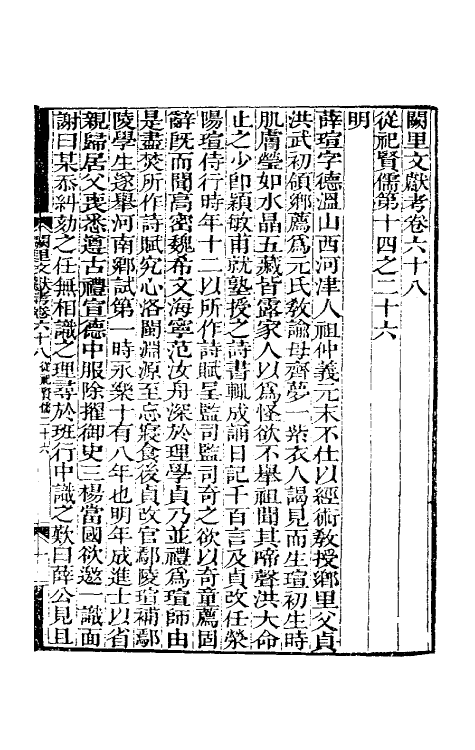 闕里文獻考卷六十八
從祀賢儒第十四之二十六
明
薛瑄字德溫山西河津人祖仲義元末不仕以經術敎授鄉里父貞
洪武初領鄉薦爲元氏敎諭母齊夢一紫衣人謁見而生瑄初生時
肌膚瑩如水晶五藏皆露家人以爲怪欲不舉祖聞其啼聲洪大命
止之少卽穎敏甫就塾授之詩書輒成誦日記千百言及貞改任滎
陽瑄侍行時年十二以所作詩賦呈監司監司奇之欲以奇童薦固
辭旣而聞高密魏希文海寧范汝舟深於理學貞乃並禮爲瑄師由
是盡焚所作詩賦究心洛閩淵源至忘寢食後貞改官鄢陵瑄補鄢
陵學生遂舉河南鄉試第一時永樂十有八年也明年成進士以省
親歸居父喪悉遵古禮宣德中服除擢御史三楊當國欲邀一識面
謝曰某忝糾劾之任無相識之理尋於班行中識之歎曰薛公見且
闕里文獻考卷六十八 從祀賢儒 二十六 一